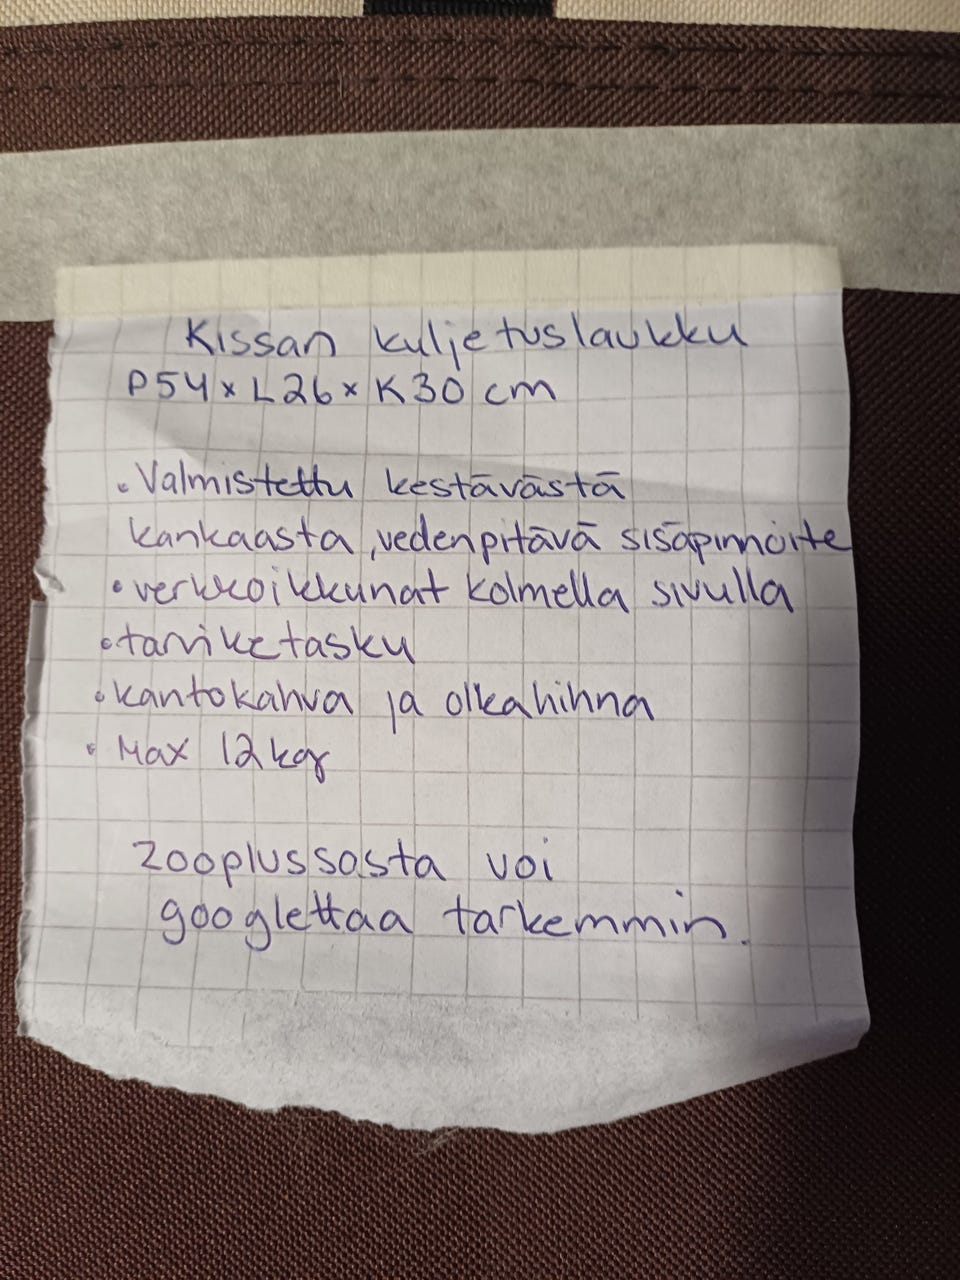 Kissan kuljetuslaukku
P54 x L26 x K30 cm
• Valmistettu kestävästä
kankaasta, vedenpitävä sisäpinnoite
• verkkoikkunat kolmella sivulla
• tarviketasku
• kantokahva ja olkahihna
• Max 12 kg
Zooplussasta voi
googlettaa tarkemmin.